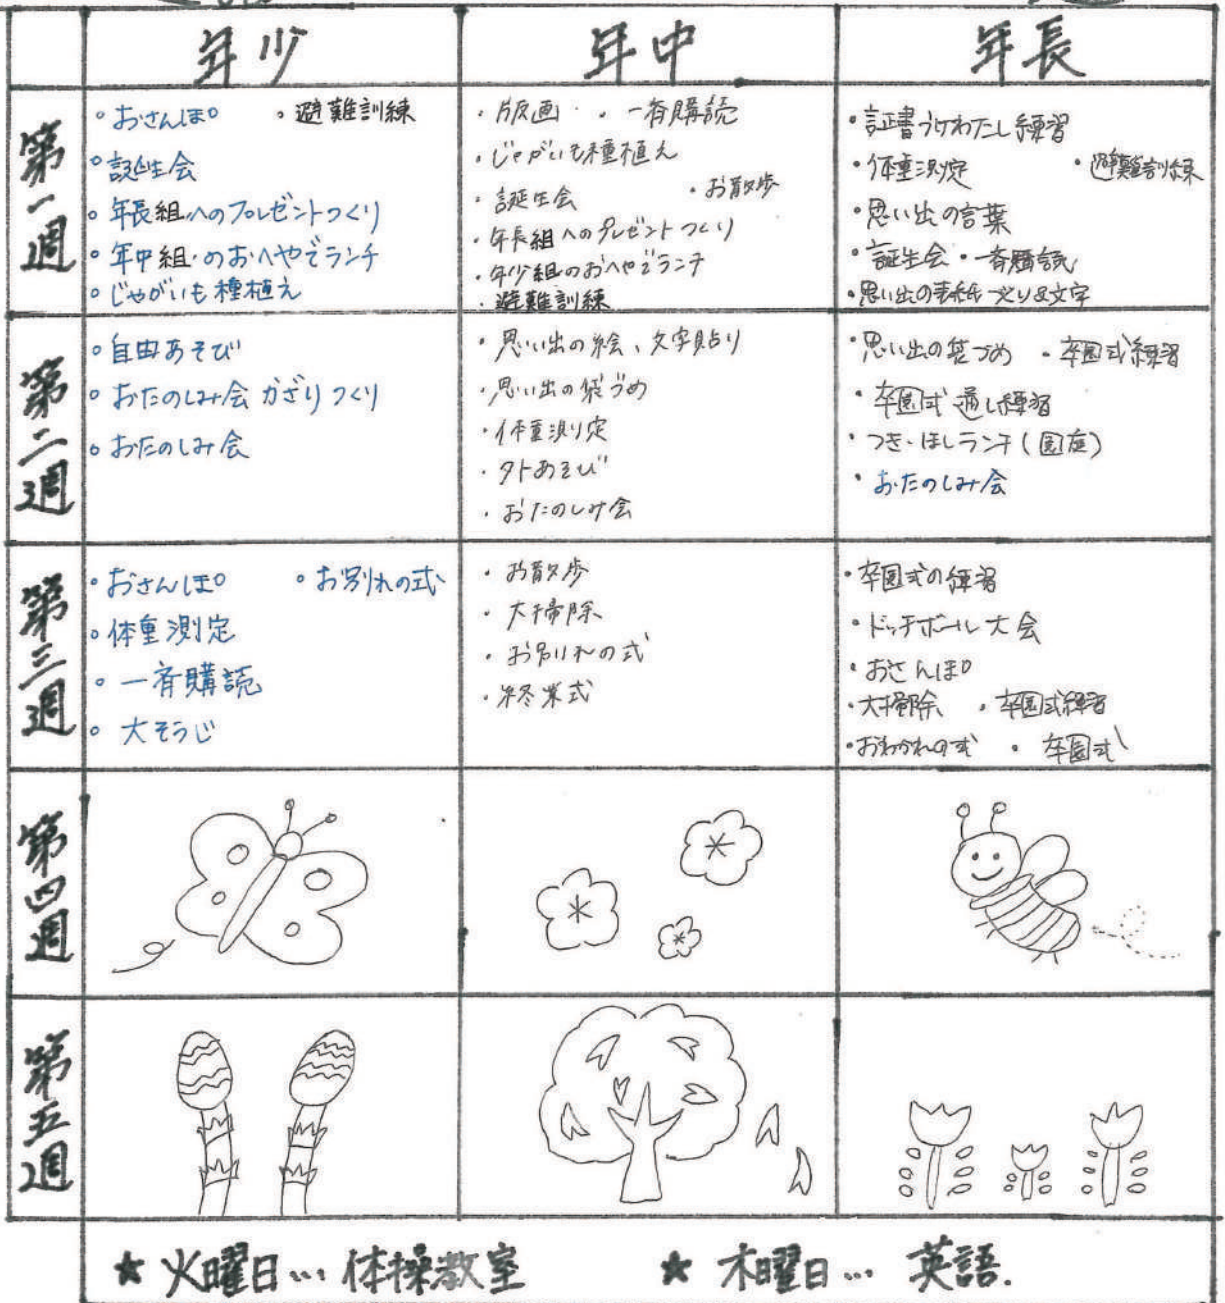 年少 年中 年長
第一週
・おさんぽ ・避難訓練
・誕生会
・年長組へのプレゼントつくり
・年中組のおへやでランチ
・じゃがいも種植え
・版画 ・一斉購読
・じゃがいも種植え
・誕生会 ・お散歩
・年長組へのプレゼントつくり
・年少組のおへやでランチ
・避難訓練
・証書うけわたし練習
・体重測定 ・避難訓練
・思い出の言葉
・誕生会 ・一斉購読
・思い出の表紙づくり&文字
第二週
・自由あそび
・おたのしみ会かざりつくり
・おたのしみ会
・思い出の絵、文字貼り
・思い出の袋づめ
・体重測定
・外あそび
・おたのしみ会
・思い出の袋づめ ・卒園式練習
・卒園式通し練習
・つき・ほしランチ(園庭)
・おたのしみ会
第三週
・おさんぽ ・お別れの式
・体重測定
・一斉購読
・大そうじ
・お散歩
・大掃除
・お別れの式
・終業式
・卒園式の練習
・ドッチボール大会
・おさんぽ
・大掃除 ・卒園式練習
・おわかれの式 ・卒園式
第四週
第五週
★火曜日…体操教室 ★木曜日…英語.